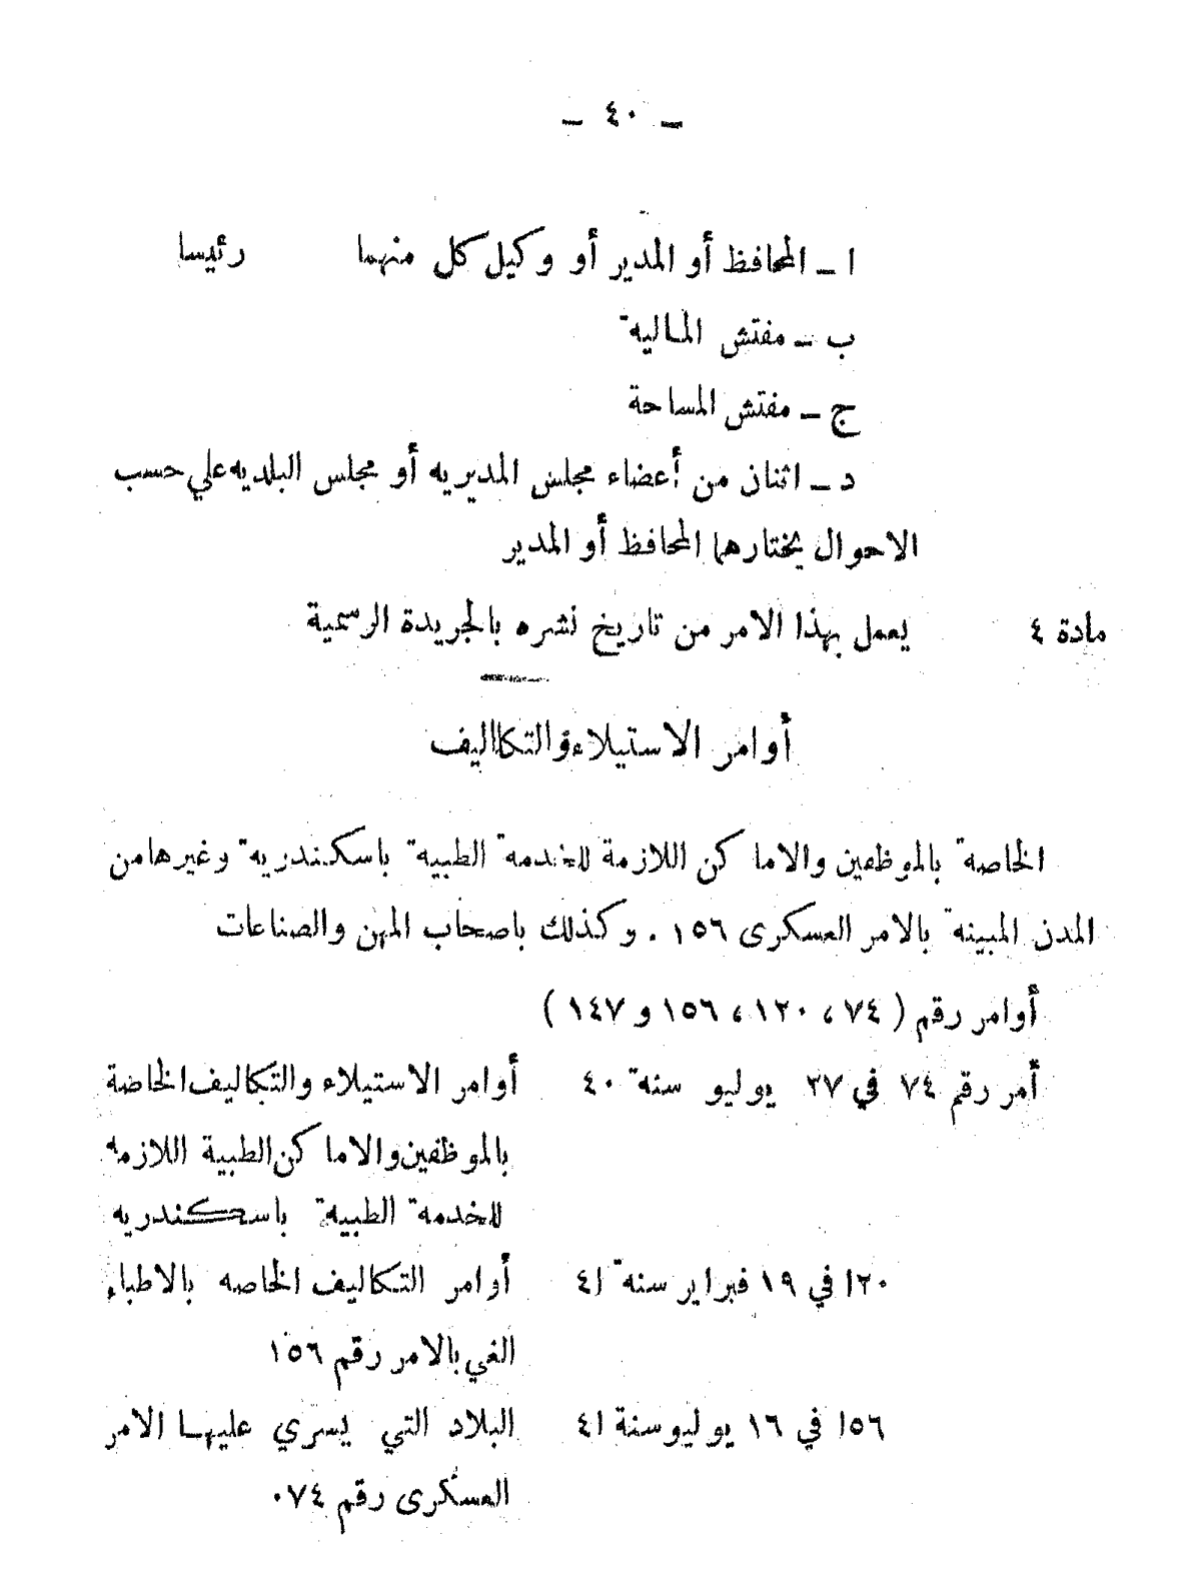 — ٤٠ —
ا — المحافظ أو المدير أو وكيل كل منهما رئيسا
ب — مفتش المالية
ج — مفتش المساحة
د — اثنان من أعضاء مجلس المديريه أو مجلس البلديه علي حسب
الاحوال يختارهما المحافظ أو المدير
مادة ٤ يعمل بهذا الامر من تاريخ نشره بالجريدة الرسمية
أوامر الاستيلاء والتكاليف
الخاصة بالموظفين والاماكن اللازمة للخدمة الطبية باسكندرية وغيرها من
المدن المبينة بالامر العسكرى ١٥٦ . وكذلك باصحاب المهن والصناعات
أوامر رقم ( ٧٤ ، ١٢٠ ، ١٥٦ و ١٤٧ )
أمر رقم ٧٤ في ٢٧ يوليو سنة ٤٠ أوامر الاستيلاء والتكاليف الخاصة
بالموظفين والاماكن الطبية اللازمه
للخدمة الطبية باسكندريه
١٢٠ في ١٩ فبراير سنة ٤١ أوامر التكاليف الخاصه بالاطباء
الغي بالامر رقم ١٥٦
١٥٦ في ١٦ يوليو سنة ٤١ البلاد التي يسري عليها الامر
العسكرى رقم ٠٧٤